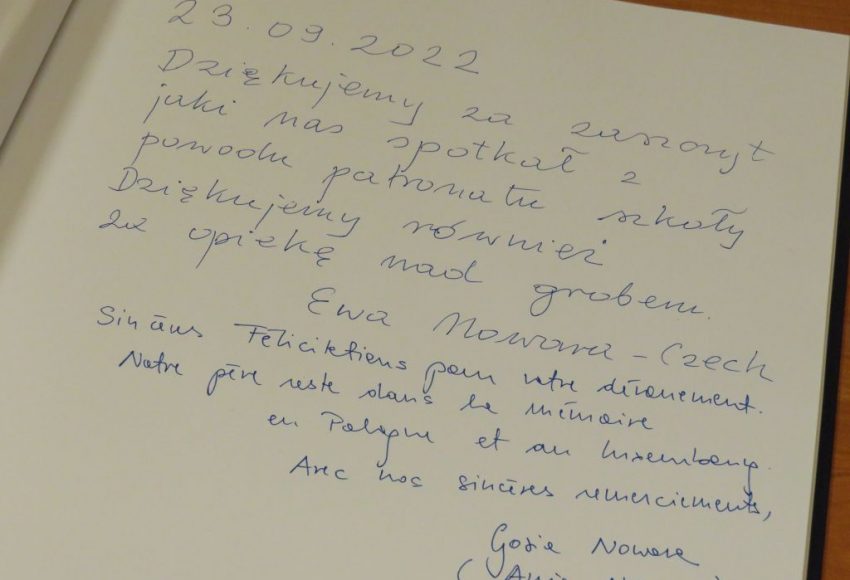 23.09.2022
Dziękujemy za zaszczyt
jaki nas spotkał z
powodu patronatu szkoły
Dziękujemy również
za opiekę nad grobem.
Ewa Nowara - Czech
Sincères Félicitations pour votre dévouement.
Notre père reste dans la mémoire
en Pologne et au Luxembourg.
Avec nos sincères remerciements,
Gosia Nowara